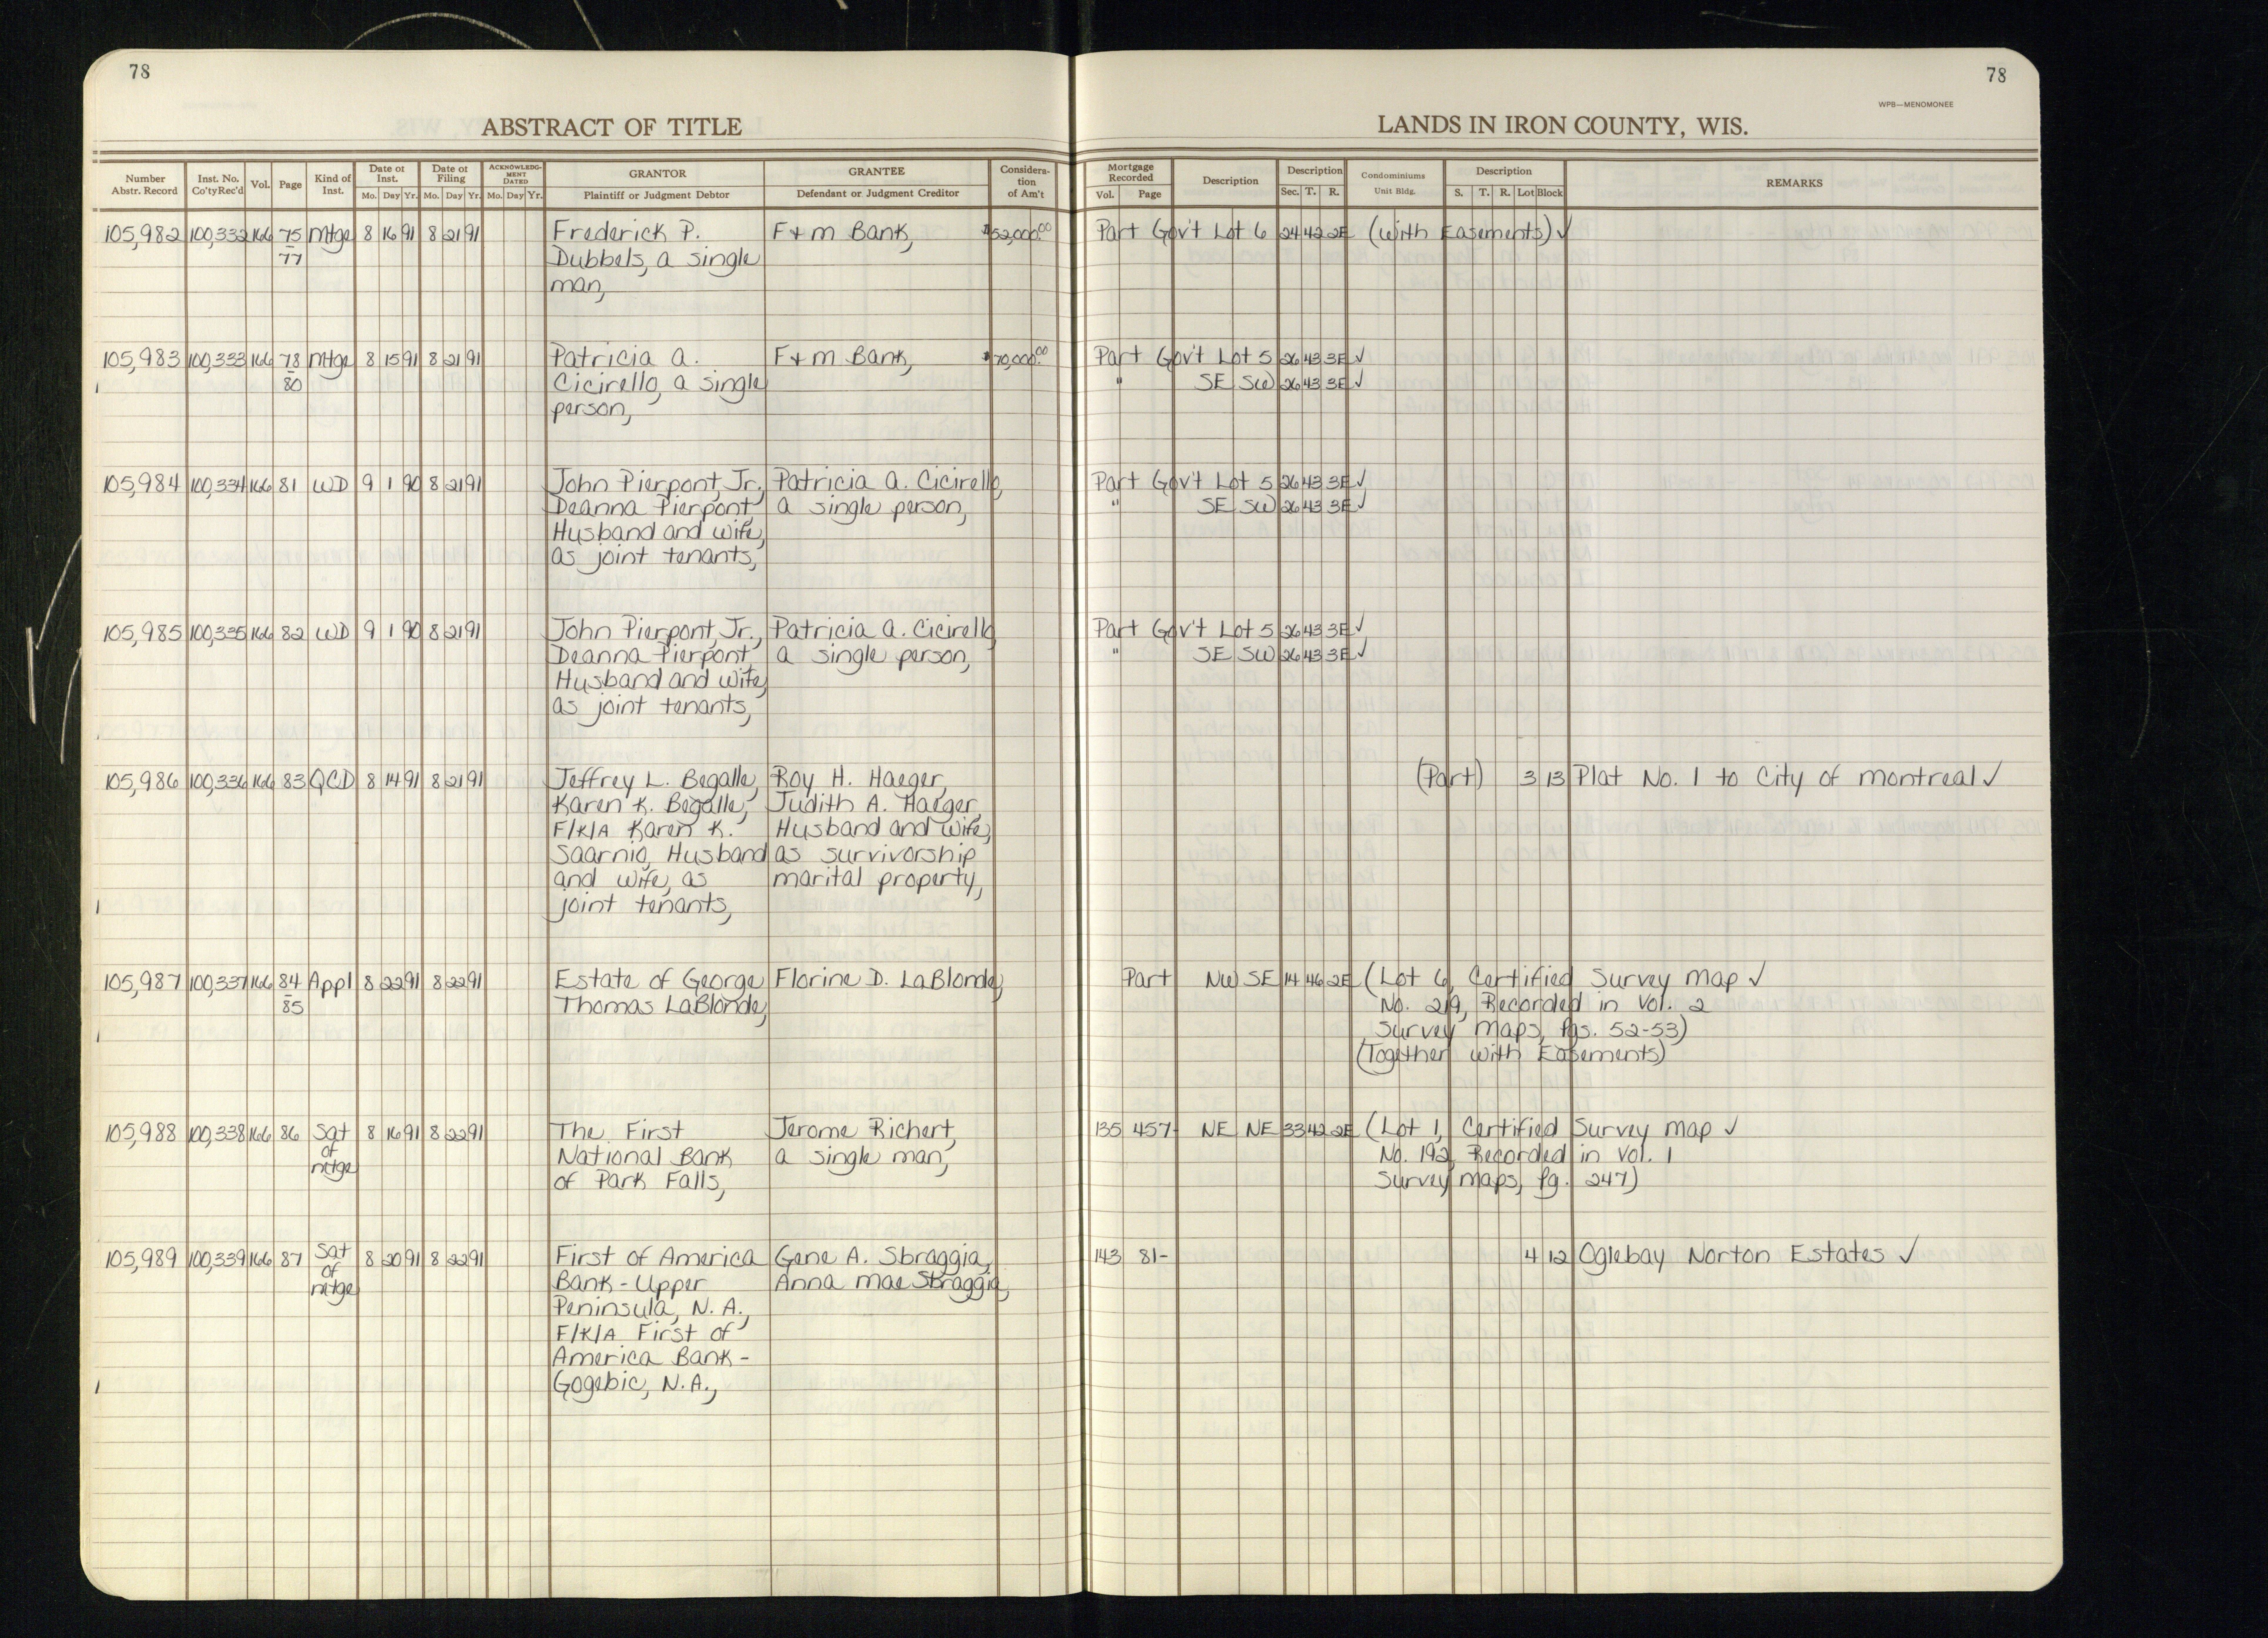 78
78
WPB—MENOMONEE
ABSTRACT OF TITLE
LANDS IN IRON COUNTY, WIS.
Number Abstr. Record | Inst. No. Co'tyRec'd | Vol. | Page | Kind of Inst. | Date of Inst. Mo. Day Yr. | Date of Filing Mo. Day Yr. | ACKNOWLEDGMENT DATED Mo. Day Yr. | GRANTOR Plaintiff or Judgment Debtor | GRANTEE Defendant or Judgment Creditor | Consideration of Am't | Mortgage Recorded Vol. Page | Description | Description Sec. T. R. | Condominiums Unit Bldg. | Description S. T. R. Lot Block | REMARKS
105,982 100,332 166 75 Mtge 8 16 91 8 21 91 Frederick P. F+M Bank, $52,000.00 Part Gov't Lot 6 24 42 2E (With Easements) ✓
77 Dubbels, a single
man,
105,983 100,333 166 78 Mtge 8 15 91 8 21 91 Patricia A. F+M Bank, $70,000.00 Part Gov't Lot 5 26 43 3E ✓
80 Cicirello, a single " SE SW 26 43 3E ✓
person,
105,984 100,334 166 81 WD 9 1 90 8 21 91 John Pierpont, Jr., Patricia A. Cicirello, Part Gov't Lot 5 26 43 3E ✓
Deanna Pierpont, a single person, " SE SW 26 43 3E ✓
Husband and Wife,
as joint tenants,
105,985 100,335 166 82 WD 9 1 90 8 21 91 John Pierpont, Jr., Patricia A. Cicirello, Part Gov't Lot 5 26 43 3E ✓
Deanna Pierpont, a single person, " SE SW 26 43 3E ✓
Husband and Wife,
as joint tenants,
105,986 100,336 166 83 QCD 8 14 91 8 21 91 Jeffrey L. Begalle, Roy H. Haeger, (Part) 3 13 Plat No. 1 to City of Montreal ✓
Karen K. Begalle, Judith A. Haeger,
F/K/A Karen K. Husband and Wife,
Saarnio, Husband as survivorship
and Wife, as marital property,
joint tenants,
105,987 100,337 166 84 Appl 8 22 91 8 22 91 Estate of George Florine D. LaBlonde, Part NW SE 14 46 2E (Lot 6, Certified Survey Map ✓
85 Thomas LaBlonde, No. 219, Recorded in Vol. 2
Survey Maps, Pgs. 52-53)
(Together with Easements)
105,988 100,338 166 86 Sat 8 16 91 8 22 91 The First Jerome Richert, 135 457- NE NE 33 42 2E (Lot 1, Certified Survey Map ✓
of National Bank a single man, No. 192, Recorded in Vol. 1
mtge of Park Falls, Survey Maps, Pg. 247)
105,989 100,339 166 87 Sat 8 20 91 8 22 91 First of America Gene A. Sbraggia, 143 81- 4 12 Oglebay Norton Estates ✓
of Bank - Upper Anna Mae Sbraggia,
mtge Peninsula, N.A.,
F/K/A First of
America Bank -
Gogebic, N.A.,